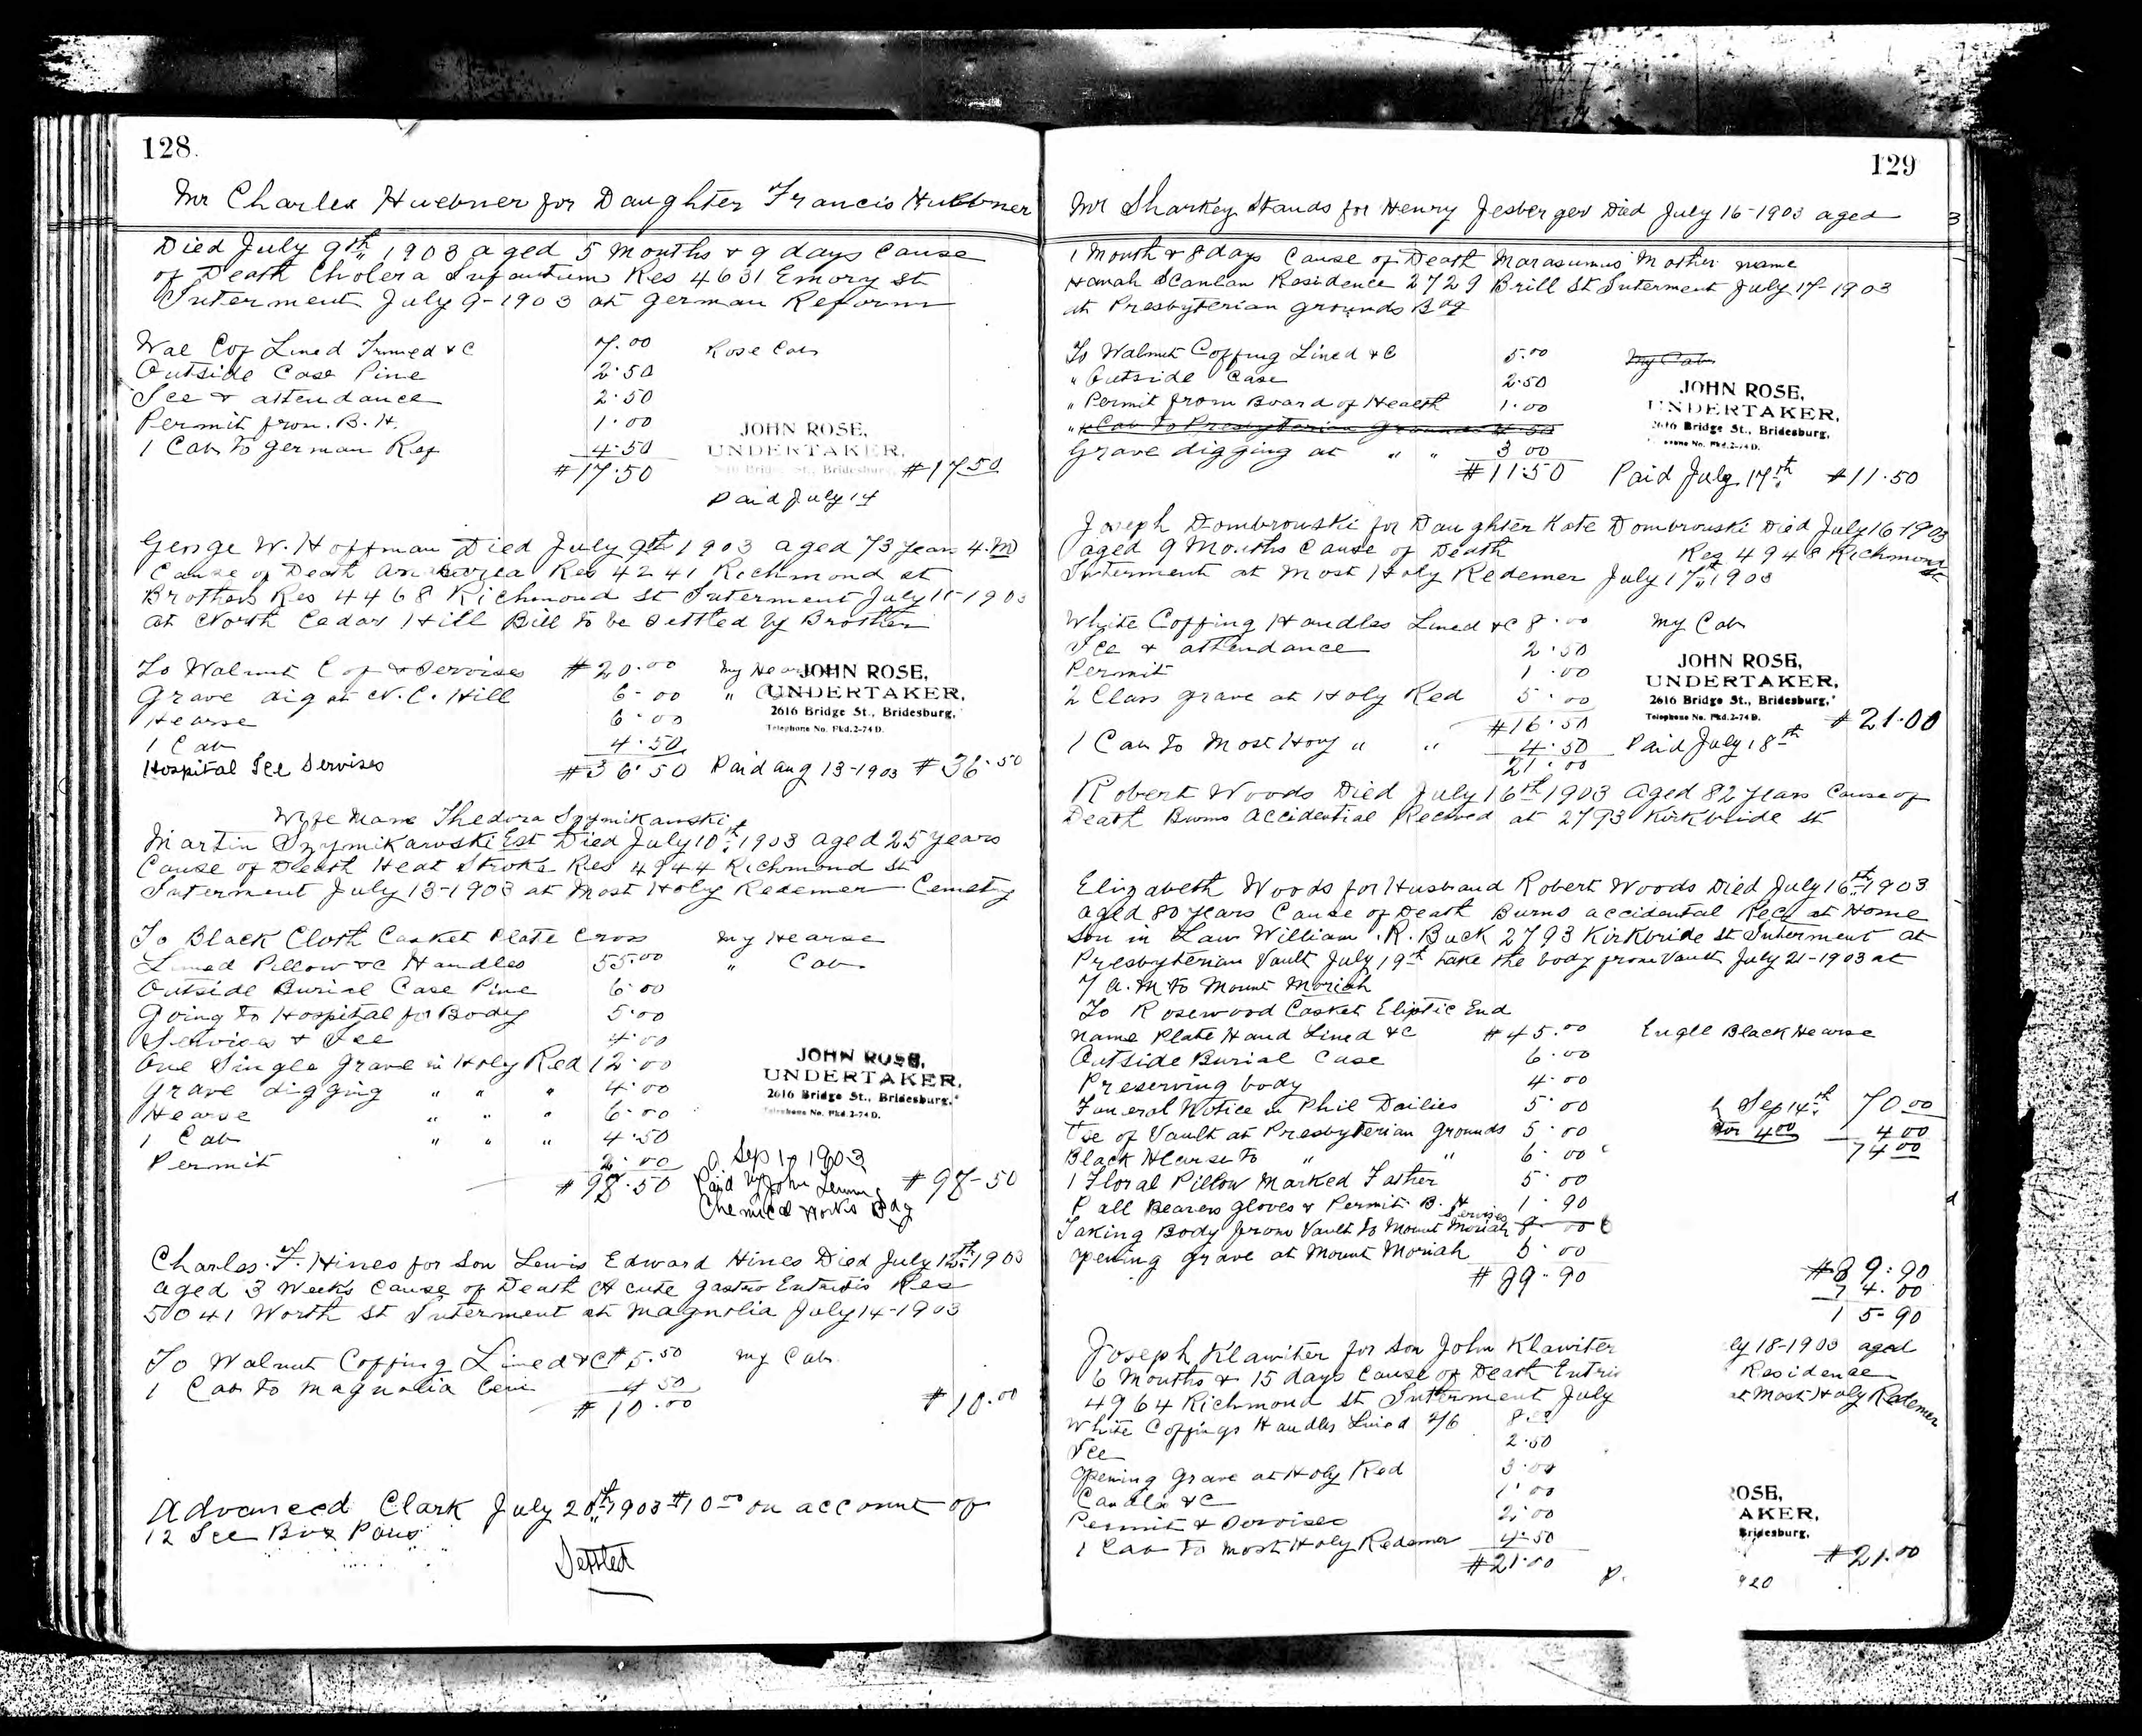 128.
Mr Charles Huebner for Daughter Francis Huebner
Died July 9th 1903 aged 5 Months & 9 days Cause
of Death Cholera Infantum Res 4631 Emory St
Interment July 9-1903 at German Reform
Wal Cof Lined Trimed & C 7.00 Rose Cab
Outside Case Pine 2.50
Ice & attendance 2.50
Permit from B. H. 1.00
1 Cab to German Ref 4.50
#17.50
JOHN ROSE,
UNDERTAKER,
2616 Bridge St., Bridesburg,
#17.50
Paid July 14
George W. Hoffman Died July 9th 1903 aged 73 Years 4. M
Cause of Death Res 4241 Richmond St
Brothers Res 4468 Richmond St Interment July 11-1903
at North Cedar Hill Bill to be Settled by Brother
To Walnut Cof & Servises #20.00 My Hearse
Grave dig at N. C. Hill 6.00 " Cab
Hearse 6.00
1 Cab 4.50
Hospital Ice Servises #36.50 Paid aug 13-1903 #36.50
JOHN ROSE,
UNDERTAKER,
2616 Bridge St., Bridesburg,
Telephone No. Fkd. 2-74 D.
Wife Name Thedora Szymikawski
Martin Szymikawski Est Died July 10th 1903 aged 25 years
Cause of Death Heat Stroke Res 4944 Richmond St
Interment July 13-1903 at Most Holy Redemer Cemetry
To Black Cloth Casket Plate Cross My Hearse
Lined Pillow & C Handles 55.00 " Cab
Outside Burial Case Pine 6.00
Going to Hospital for Body 5.00
Services & Ice 4.00
One Single Grave in Holy Red 12.00
Grave digging " " " 4.00
Hearse " " " 6.00
1 Cab " " " 4.50
Permit 2.00
#98.50
JOHN ROSE,
UNDERTAKER,
2616 Bridge St., Bridesburg,
Telephone No. Fkd. 2-74 D.
Sep 1903
Paid by John
Chemical Works Bdg
#98-50
Charles F. Hines for Son Lewis Edward Hines Died July 12th 1903
aged 3 Weeks Cause of Death Acute Gastro Entritis Res
5041 Worth St Interment at Magnolia July 14-1903
To Walnut Coffing Lined & C #5.50 My Cab
1 Cab to Magnolia Cem 4.50
#10.00 #10.00
Advanced Clark July 20th 1903 #10.00 on account of
12 Ice Box Pans
Settled
129
Mr Sharkey Stands for Henry Jesberger Died July 16-1903 aged
1 Month & 8 days Cause of Death Marasumus Mother name
Hanah Scanlan Residence 2729 Brill St Interment July 17-1903
at Presbyterian grounds Bdg
To Walnut Coffing Lined & C 5.00 My Cab
" Outside Case 2.50
" Permit from Board of Health 1.00
" 1 Cab to Presbyterian Grounds 4.50
Grave digging at " " 3.00
#11.50 Paid July 17th #11.50
JOHN ROSE,
UNDERTAKER,
2616 Bridge St., Bridesburg,
Telephone No. Fkd. 2-74 D.
Joseph Dombrouski for Daughter Kate Dombrouski Died July 16-1903
aged 9 Months Cause of Death Res 4948 Richmond St
Interment at Most Holy Redemer July 17th 1903
White Coffing Handles Lined & C 8.00 My Cab
Ice & attendance 2.50
Permit 1.00
2 Class grave at Holy Red 5.00
#16.50
1 Cab to Most Holy " " 4.50 Paid July 18th
21.00
JOHN ROSE,
UNDERTAKER,
2616 Bridge St., Bridesburg,
Telephone No. Fkd. 2-74 D.
#21.00
Robert Woods Died July 16th 1903 aged 82 years Cause of
Death Burns Accidential Recived at 2793 Kirkbride St
Elizabeth Woods for Husband Robert Woods Died July 16th 1903
aged 80 years Cause of Death Burns accidental Rec at Home
Son in Law William R. Buck 2793 Kirkbride St Interment at
Presbyterian Vault July 19th take the body from Vault July 21-1903 at
7 A. M to Mount Moriah
To Rosewood Casket Eliptic End
Name Plate Hand Lined & C #45.00 Engle Black Hearse
Outside Burial Case 6.00
Preserving body 4.00
Funeral Notice in Phil Dailies 5.00 Sep 14th 70.00
Use of Vault at Presbyterian grounds 5.00 4.00 4.00
Black Hearse to " " 6.00 74.00
1 Floral Pillow Marked Father 5.00
Pall Bearers gloves & Permit B. H 1.90
Taking Body from Vault to Mount Moriah Servises
opening grave at Mount Moriah 5.00
#89.90
#89.90
74.00
15-90
Joseph Klawiter for Son John Klawiter ly 18-1903 aged
6 Months & 15 days Cause of Death Entri Residence
4964 Richmond St Interment July at Most Holy Redemer
White Coffings Handles Lined 2/6 8.00
Ice 2.50
Opening Grave at Holy Red 3.00
Candls & C 1.00
Permit & Servises 2.00
1 Cab to Most Holy Redemer 4.50
#21.00
ROSE,
AKER,
Bridesburg,
#21.00
P.
920